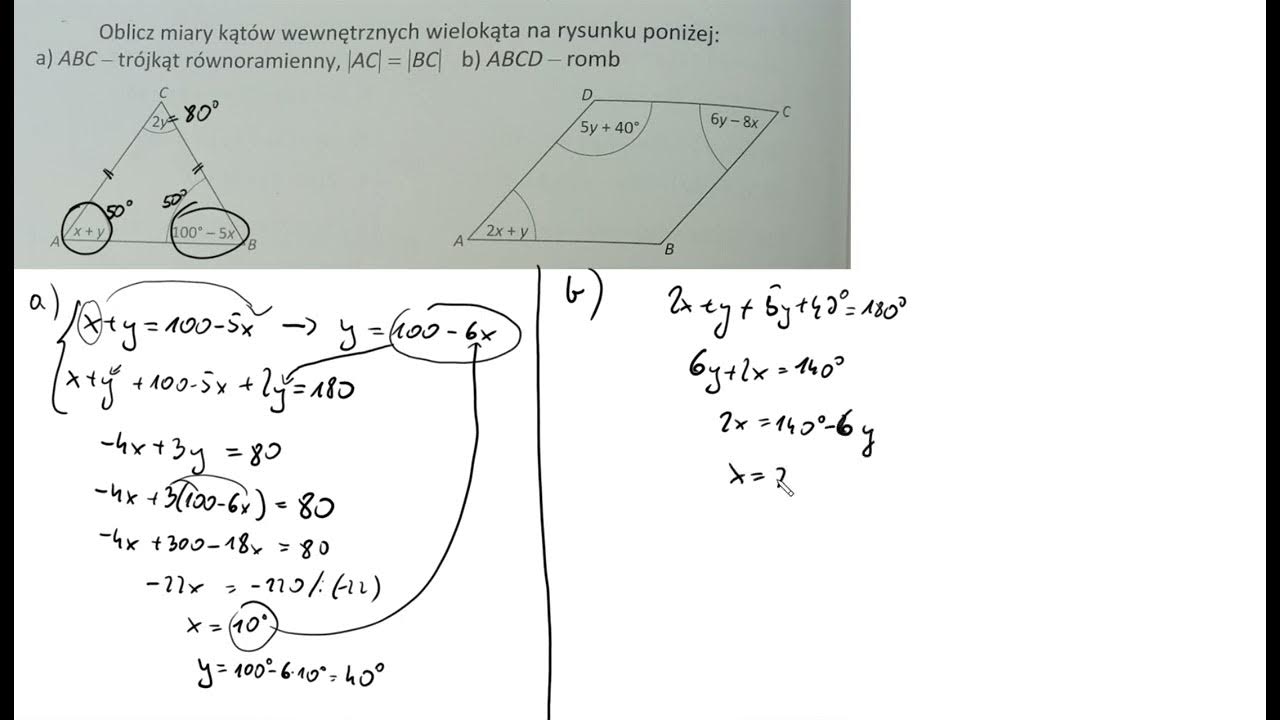 Oblicz miary kątów wewnętrznych wielokąta na rysunku poniżej:
a) ABC – trójkąt równoramienny, |AC| = |BC| b) ABCD – romb
C
2y = 80°
50°
50°
x + y
100° – 5x
A
B
D
C
5y + 40°
6y – 8x
2x + y
A
B
a)
x + y = 100 - 5x → y = 100 - 6x
x + y + 100 - 5x + 2y = 180
-4x + 3y = 80
-4x + 3(100 - 6x) = 80
-4x + 300 - 18x = 80
-22x = -220 /: (-22)
x = 10°
y = 100° - 6·10° = 40°
b)
2x + y + 5y + 40° = 180°
6y + 2x = 140°
2x = 140° - 6y
x =